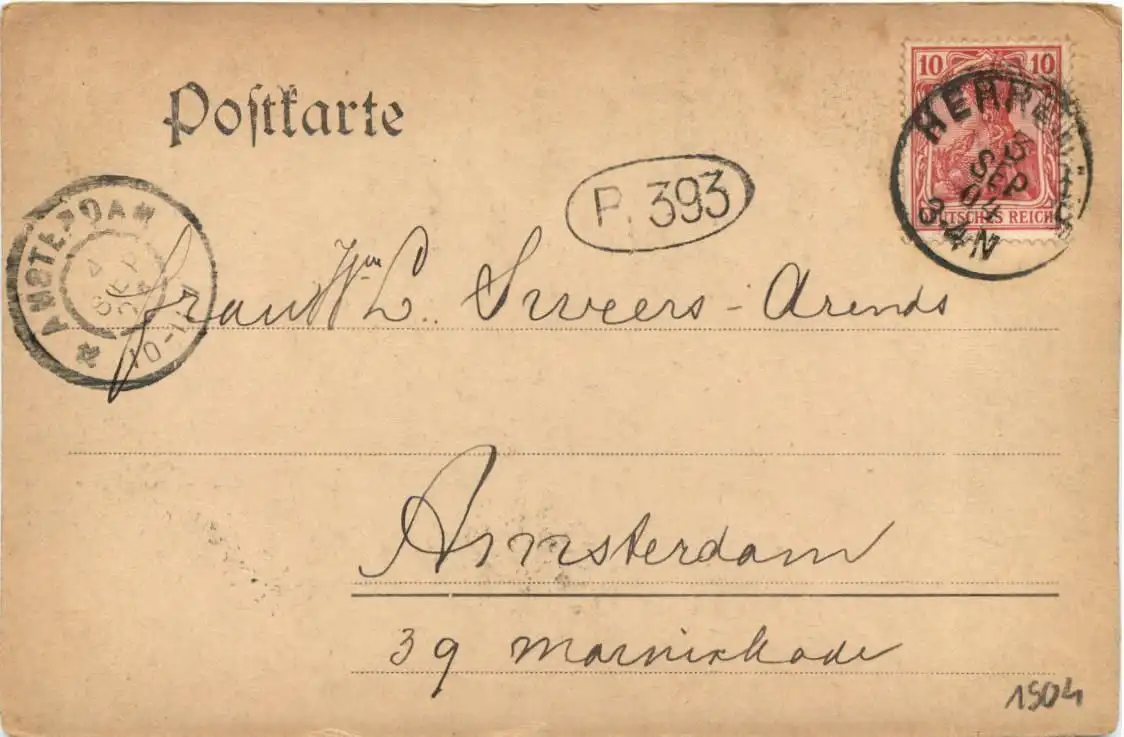 Postkarte
10 10
DEUTSCHES REICH
3
SEP
04
3-4N
P. 393
AMSTERDAM
4 SEP
Frau Wm L. Sweers-Arends
Amsterdam
39 Marnixkade
1904